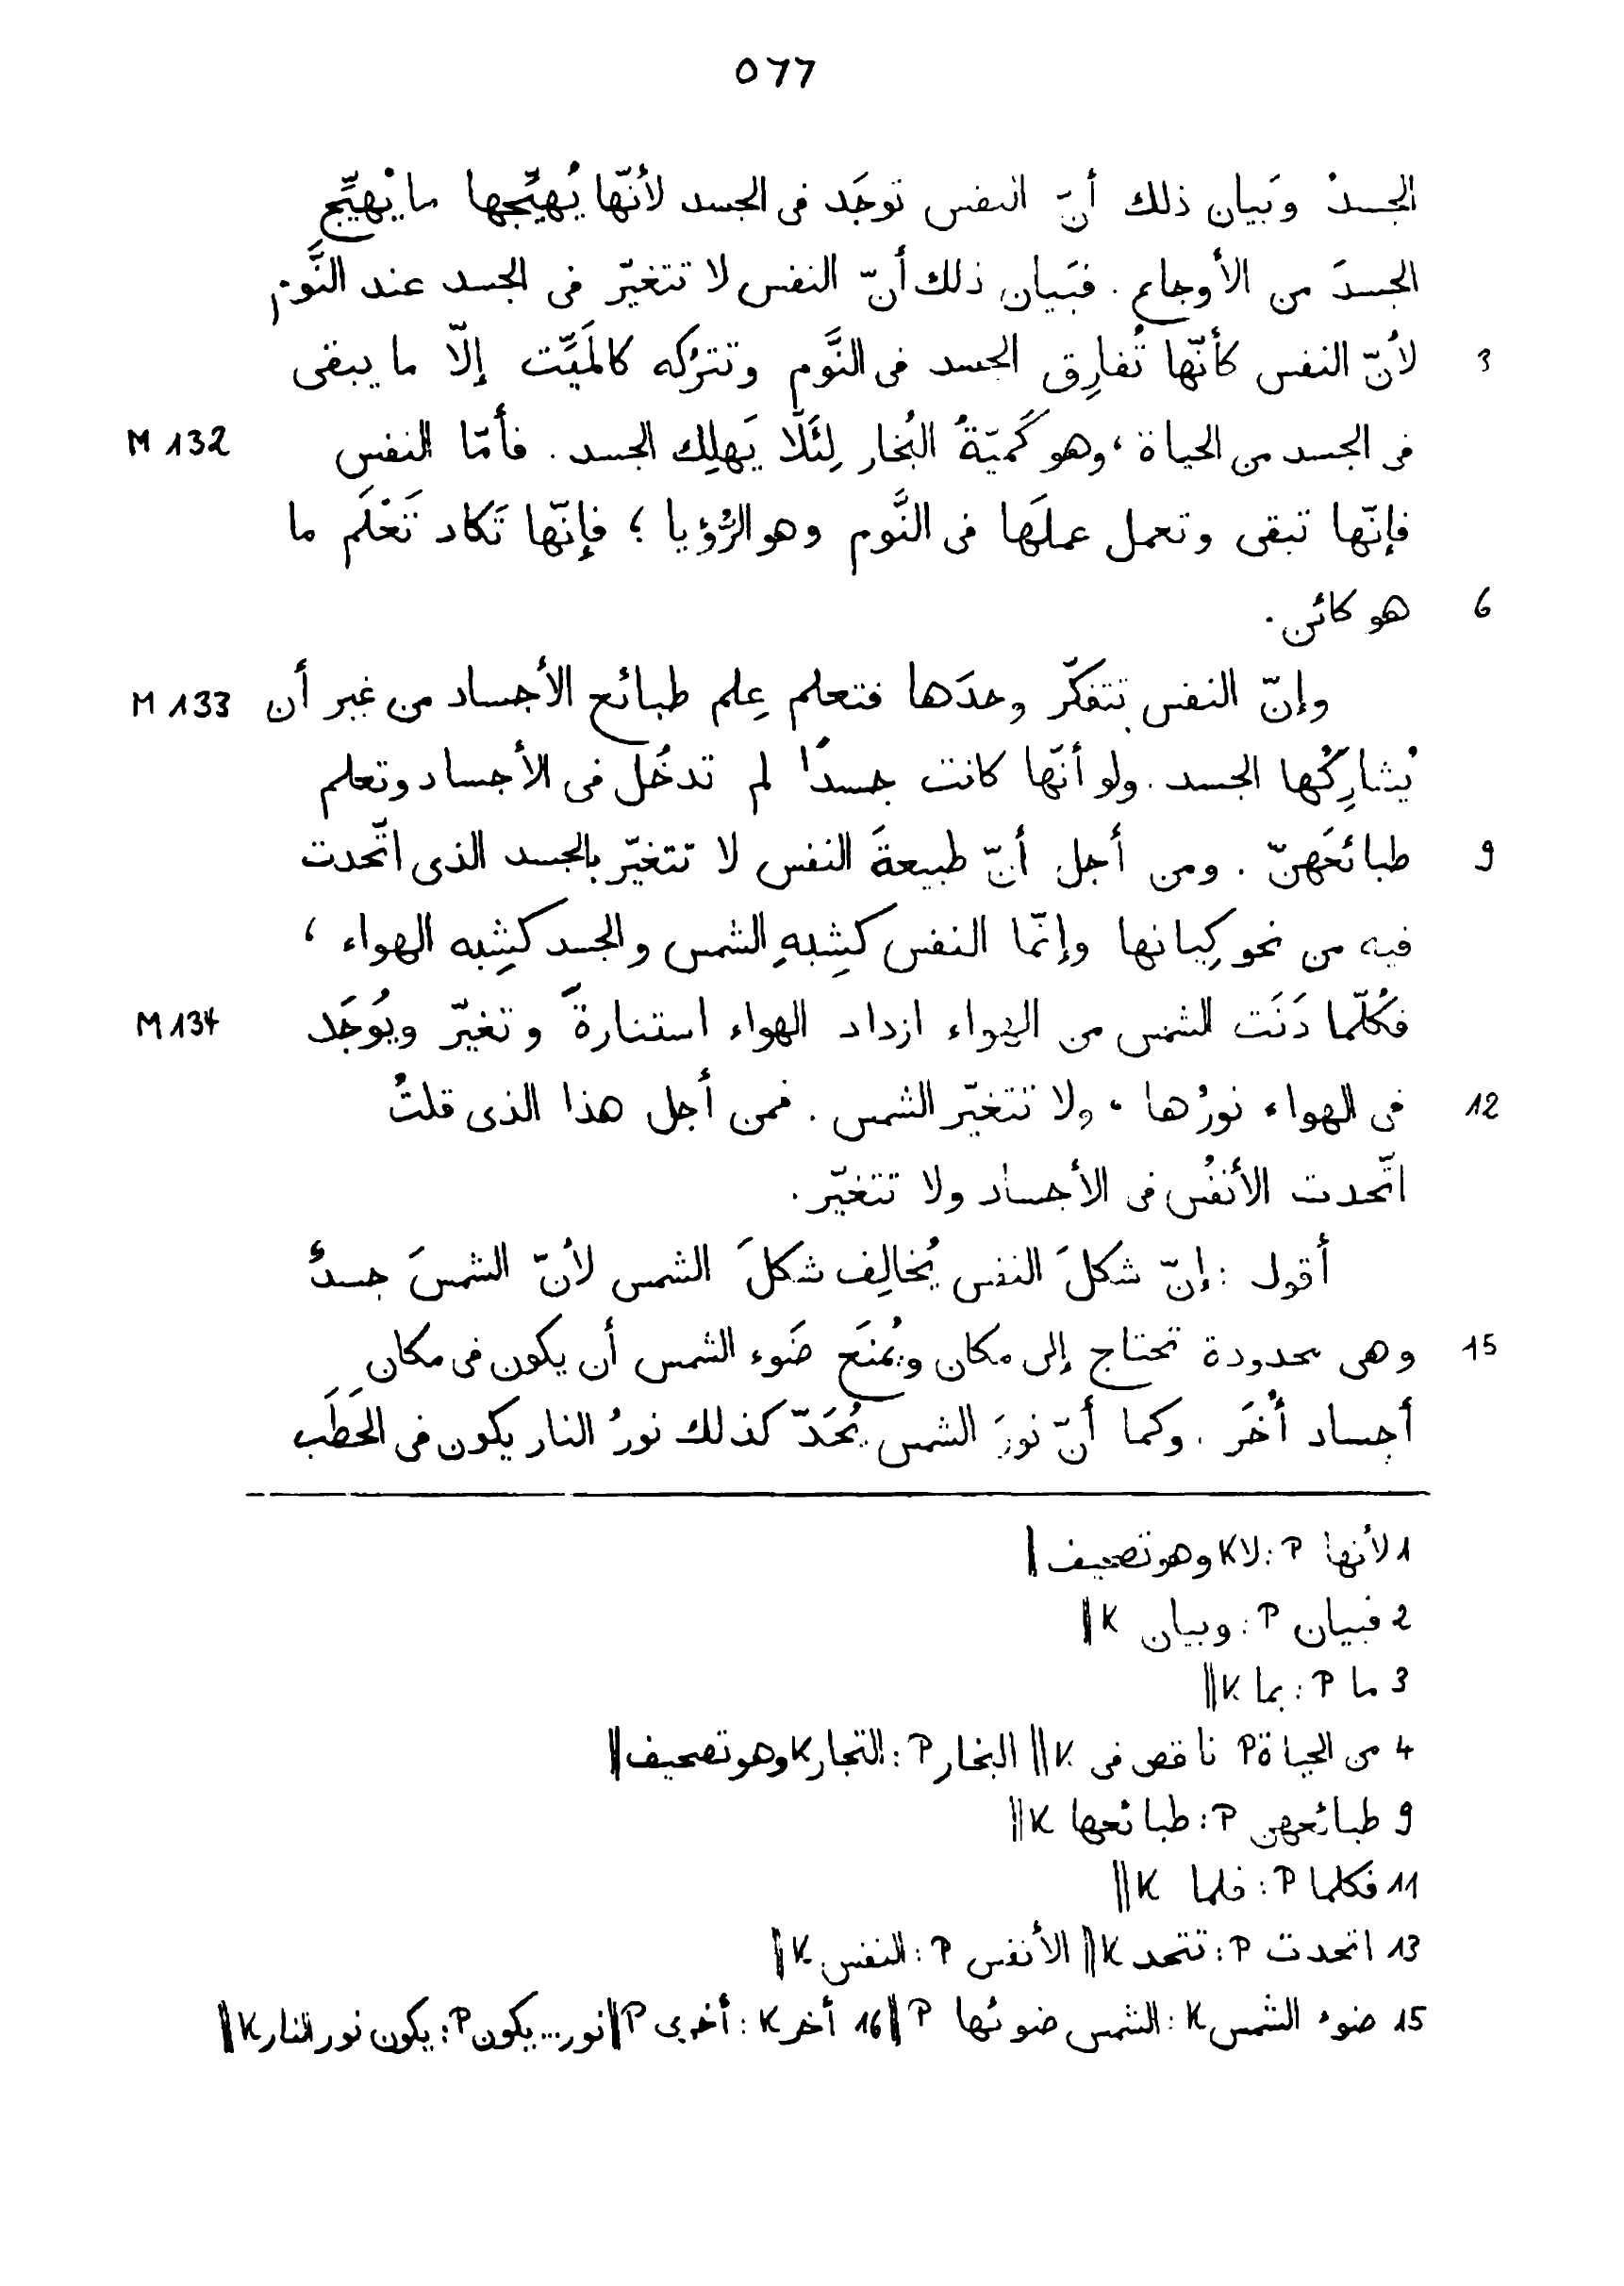 ٥٦٦
الجسدُ وَبيان ذلك أنّ النفس توجَد فى الجسد لأنّها يُهيِّجها ما يُهيِّج
الجسدَ من الأوجاع . فبَيان ذلك أنّ النفس لا تتغيّر فى الجسد عند النَّوم
3 لأنّ النفس كأنّها تُفارِق الجسد فى النَّوم وتترُكه كالمَيِّت إلّا ما يبقى
M 132 فى الجسد من الحياة ، وهو كَميّةُ البُخار لِئَلّا يَهلِك الجسد . فأمّا النفس
فإنّها تبقى وتعمل عملَها فى النَّوم وهو الرُّؤيا ؛ فإنّها تَكاد تَعْلَم ما
6 هو كائن .
M 133 وإنّ النفس تتفكّر وحدَها فتعلم عِلم طبائع الأجساد من غير أن
يُشارِكُها الجسد . ولو أنّها كانت جسدًا لم تدخُل فى الأجساد وتعلم
9 طبائعَهنّ . ومن أجل أنّ طبيعةَ النفس لا تتغيّر بالجسد الذى اتّحدت
فيه من نحو كِيانها وإنّما النفس كشِبهِ الشمس والجسد كشِبه الهواء ،
M 134 فكُلّما دَنَت الشمس من الهواء ازداد الهواء استنارةً وتغيّر ويُوجَد
12 فى الهواء نورُها ، ولا تتغيّر الشمس . فمن أجل هذا الذى قلتُ
اتّحدت الأنفُس فى الأجساد ولا تتغيّر .
أقول : إنّ شكلَ النفس يُخالِف شكلَ الشمس لأنّ الشمسَ جسدٌ
15 وهى محدودة تحتاج إلى مكان ويُمنَع ضَوء الشمس أن يكون فى مكان
أجساد أُخَر . وكما أنّ نورَ الشمس يُحَدّ كذلك نورُ النار يكون فى الحَطَب
1 لأنها P : لا K وهو تصحيف ‖
2 فبيان P : وبيان K ‖
3 ما P : بما K ‖
4 من الحياة P ناقص فى K ‖ البخار P : التجار K وهو تصحيف ‖
9 طبائعهن P : طبائعها K ‖
11 فكلما P : فلما K ‖
13 اتحدت P : تتحد K ‖ الأنفس P : النفس K ‖
15 ضوء الشمس K : الشمس ضوئها P ‖ 16 أخر K : أخرى P ‖ نور ... يكون P : يكون نور النار K ‖